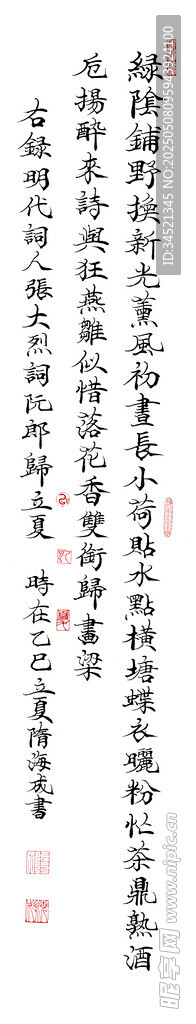 綠陰鋪野換新光薰風初晝長小荷貼水點橫塘蝶衣曬粉忙茶鼎熟酒
卮揚醉來詩與狂燕雛似惜落花香雙銜歸畫梁
右錄明代詞人張大烈詞阮郎歸立夏 時在乙巳立夏隋海成書
ID:34521345 NO:20250508095943924100
昵享网 www.nipic.cn